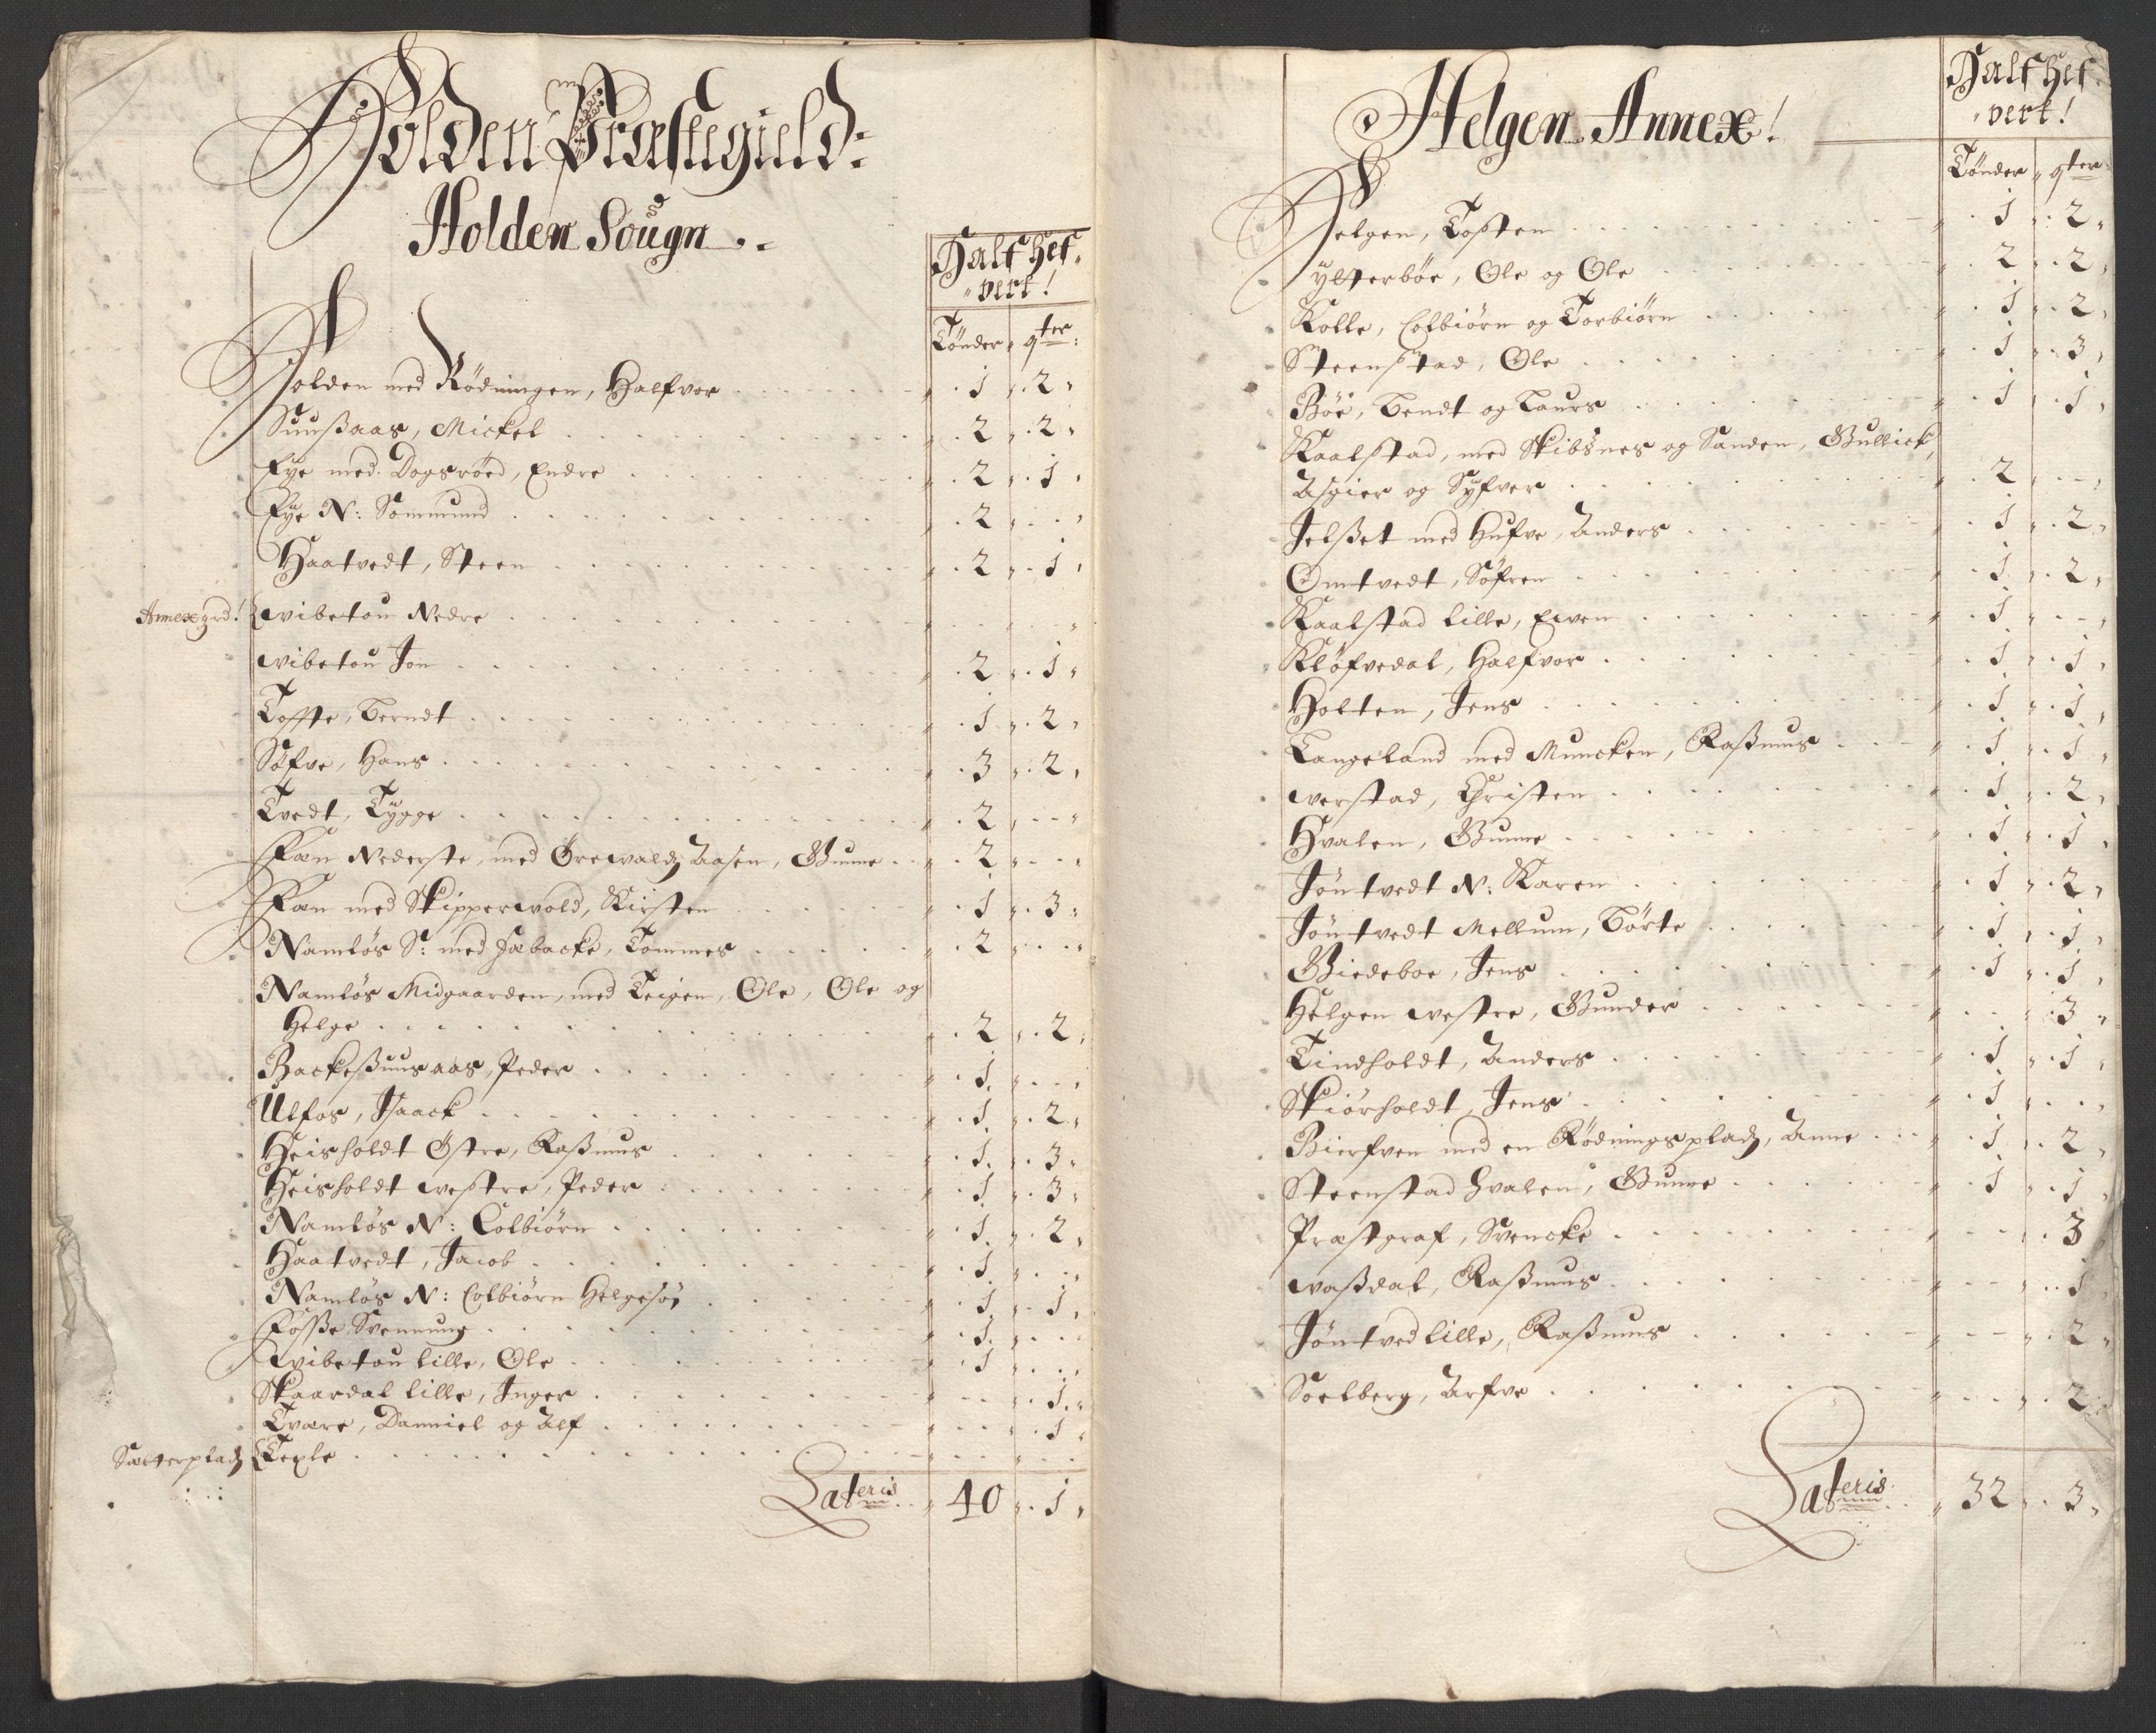 Holden Præstegield:
Holden Sougn
Half hef-
vert!
Tønder qter:
Holden med Rødningen, Halfvor 1 2
Suußaas, Mickel 2 2
Eye med Dogsrøed, Endre 2 1
Eye N: Sommund 2
Haatvedt, Steen 2 1
Annexgrd! Wibetou Nedre
Wibetou Jon 2 1
Toffte, Berndt 1 2
Søfve, Hans 3 2
Tvedt, Tygge 2
Fæn Nederste, med Grewaldz Aasen, Gunne 2
Fæn med Skipperwold, Kirsten 1 3
Namløs S: med Jæbacke, Tommes 2
Namløs Midgaarden, med Teigen, Ole, Ole og
Helge 2 2
Backeßuusaas, Peder 1
Ulfos, Isaack 1 2
Heisholdt Østre, Raßmus 1 3
Heisholdt Westre, Peder 1 3
Namløs N: Colbiørn 1 2
Haatvedt, Jacob 1
Namløs N: Colbiørn Helgesøn 1 1
Foße, Svennung 1
Wibetou lille, Ole 1
Skaardal lille, Inger 1
Tvære, Danniel og Alf 1
Sætterpladz Teyle
Lateris 40 1
Helgen Annex!
Half hef-
vert!
Tønder qter:
Helgen, Tosten 1 2
Ylterbøe, Ole og Ole 2 2
Kolle, Colbiørn og Torbiørn 1 2
Steenstad, Ole 1 3
Bøe, Bendt og Laurs 1 1
Kaalstad, med Skibsnes og Sanden, Gullick,
Asgier og Syfver 2
Jelßet med Hufve, Anders 1 2
Omtvedt, Søfren 1 2
Kaalstad lille, Ewen 1
Kløfvedal, Halfvor 1 1
Holten, Jens 1 1
Langeland med Muncken, Raßmus 1 1
Werstad, Christen 1 2
Hvalen, Gunne 1 1
Jøntvedt N: Karen 1 2
Jøntvedt Mellum, Børte 1 1
Giedeboe, Jens 1 1
Helgen Westre, Gunder 3
Tindholdt, Anders 1 1
Skiørholdt, Jens 1
Bierfven med en Rødningspladz, Anne 1 2
Steenstad Hvalen, Gunne 1 1
Præstgraf, Svencke 3
Waßdal, Raßmus 1
Jøntved lille, Raßmus 2
Soelberg, Arfve 2
Lateris 32 3